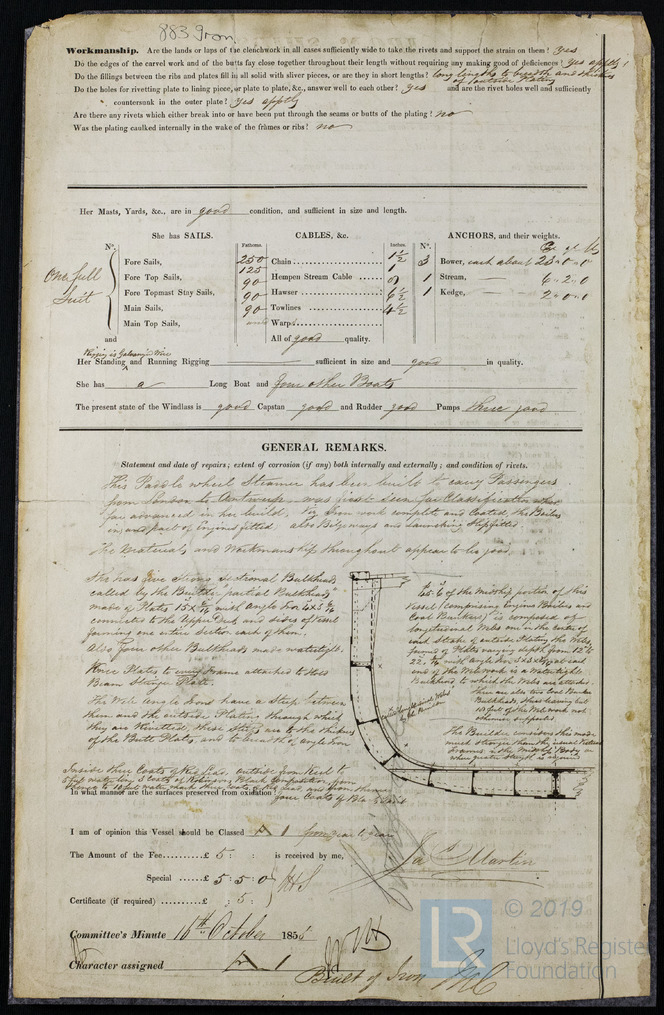 883 Iron
Workmanship. Are the lands or laps of the clenchwork in all cases sufficiently wide to take the rivets and support the strain on them? Yes
Do the edges of the carvel work and of the butts fay close together throughout their length without requiring any making good of deficiences? Yes apptly
Do the fillings between the ribs and plates fill in all solid with sliver pieces, or are they in short lengths? long lengths to breadth and thickness
of outside Plating
Do the holes for rivetting plate to lining piece, or plate to plate, &c., answer well to each other? yes and are the rivet holes well and sufficiently
countersunk in the outer plate? Yes apptly
Are there any rivets which either break into or have been put through the seams or butts of the plating? no
Was the plating caulked internally in the wake of the frames or ribs? no
Her Masts, Yards, &c., are in good condition, and sufficient in size and length.
She has SAILS. CABLES, &c. ANCHORS, and their weights.
N°. Fathoms. Inches. N°.
One full Suit
Fore Sails, 250 Chain 1½ 3 Bower, each about 23.0.0
Fore Top Sails, 125 1
Fore Topmast Stay Sails, 90 Hempen Stream Cable 9 1 Stream, 6.2.0
Main Sails, 90 Hawser 6½ 1 Kedge, 2.0.0
Main Top Sails, 90 Towlines 4½
and Warp
All of good quality.
Rigging is Galvanized Wire
Her Standing and Running Rigging sufficient in size and good in quality.
She has a Long Boat and four other Boats
The present state of the Windlass is good Capstan good and Rudder good Pumps three good
GENERAL REMARKS.
Statement and date of repairs; extent of corrosion (if any) both internally and externally; and condition of rivets.
This Paddle wheel Steamer has been built to carry Passengers
from London to Antwerp, was first seen for Classification when
far advanced in her build. Viz Iron work complete and Coated, the Boilers
in, and part of Engines fitted also Bilgeways and Launching Slip fitted
The Materials, and Workmanship throughout appear to be good.
She has five strong Sectional Bulkheads
called by the Builder partial Bulkheads
made of Plates 15 x 5/16 with Angle Iron 4 x 3
connected to the Upper Deck and sides of Vessel
forming one entire section each of them.
Also four other Bulkheads made watertight.
Knee Plates to every Frame attached to Hold
Beam Stringer Plate.
The Web Angle Irons have a Strip between
them and the outside Plating through which
they are Rivetted, these Strips are to the thickness
of the Butt Plates, and to breadth of Angle Iron
65.6 of the Midship portion of this
Vessel (comprising Engines Boilers and
Coal Bunkers) is composed of
longitudinal Webs one in the centre of
each Strake of outside Plating the Webs
formed of Plates varying depth from 12 to
22 with Angle Iron at each
end of the Webwork is a Watertight
Bulkhead to which the Webs are attached.
There are also two Coal Bunker
Bulkheads, thus leaving but
of the Webwork not
otherwise supported
The Builder considers this mode
much stronger than the usual Vertical
Frames in the Midship Body or
when greater strength is required
Inside three Coats of Red Lead, outside from Keel to
5 feet water line 3 Coats of Black Composition, from
thence to 10 feet water mark three Coats of Red Lead and from thence
In what manner are the surfaces preserved from oxidation? four Coats of Bla Paint
I am of opinion this Vessel should be Classed A 1 from year to year
The Amount of the Fee £ 5 : : is received by me,
Special £ 5 : 5 : 0
Certificate (if required) £ : 5 :
Jas Martin
Committee's Minute 16th October 1855
Character assigned A 1
Built of Iron
LR
© 2019
Lloyd's Register
Foundation